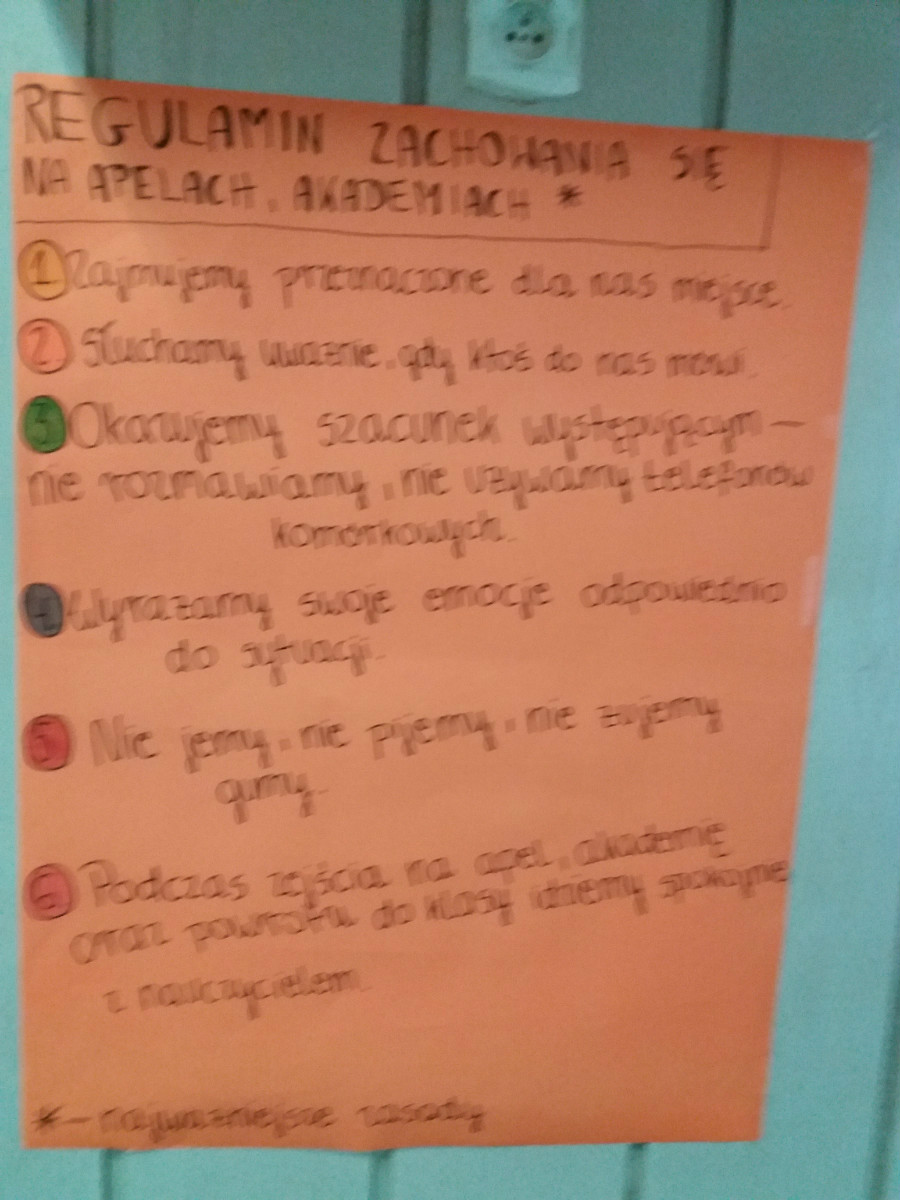 REGULAMIN ZACHOWANIA SIĘ
NA APELACH, AKADEMIACH *
1 Zajmujemy przeznaczone dla nas miejsce.
2 Słuchamy uważnie, gdy ktoś do nas mówi.
3 Okazujemy szacunek występującym –
nie rozmawiamy, nie używamy telefonów
komórkowych.
4 Wyrażamy swoje emocje odpowiednio
do sytuacji.
5 Nie jemy, nie pijemy, nie żujemy
gumy.
6 Podczas zejścia na apel, akademię
oraz powrotu do klasy idziemy spokojnie
z nauczycielem.
* – najważniejsze zasady